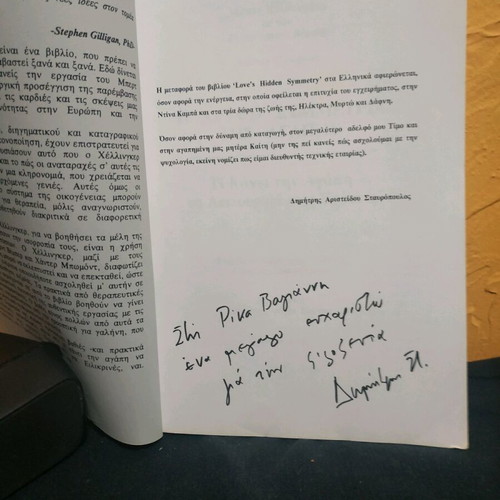 ίδιες ιδέες στον τομέα
-Stephen Gilligan, PhD.
είναι ένα βιβλίο, που πρέπει να
διαβαστεί ξανά και ξανά. Εδώ δίνεται
την εργασία του Μπερτ
προσέγγιση της παρέμβασης
τις καρδιές και τις σκέψεις μας
στην Ευρώπη και την
διηγηματικού και καταγραφικού
έχουν επιστρατευτεί για
αυτό που ο Χέλλινγκερ
και το πώς οι αναταραχές σ' αυτές τις
μια κληρονομιά, που χρειάζεται να
γενιές. Αυτές όμως οι
σύστημα της οικογένειας μπορούν
να θεραπεία, μόλις αναγνωριστούν,
διακριτικά σε διαφορετική
για να βοηθήσει τα μέλη της
την ισορροπία τους, είναι η χρήση
Ο Χέλλινγκερ, μαζί με τους
και Χάντερ Μπωμόντ, διαφωτίζει
και να επεκταθεί, ώστε
ασχοληθεί μ' αυτήν σε
πρακτικά από θεραπευτικές
το βιβλίο βοηθούν να γίνει
εργασίας με τις
πολλών από αυτά τα
για γαλήνη, που
-και πρακτικά
την αγάπη να
Ειλικρινές, ναι.
Η μεταφορά του βιβλίου 'Love's Hidden Symmetry' στα Ελληνικά αφιερώνεται,
όσον αφορά την ενέργεια, στην οποία οφείλεται η επιτυχία του εγχειρήματος, στην
Ντίνα Καμπά και στα τρία δώρα της ζωής της, Ηλέκτρα, Μυρτώ και Δάφνη.
Όσον αφορά στην δύναμη από καταγωγή, στον μεγαλύτερο αδελφό μου Τίμο και
στην αγαπημένη μας μητέρα Καίτη (μην της πεί κανείς πώς ασχολούμαι με την
ψυχολογία, εκείνη νομίζει πως είμαι διευθυντής τεχνικής εταιρίας).
Δημήτρης Αριστείδου Σταυρόπουλος
Στη Ρίνα Βαγιάννη
ένα μεγάλο ευχαριστώ
γιά την φιλοξενία
Δημήτρης Στ.